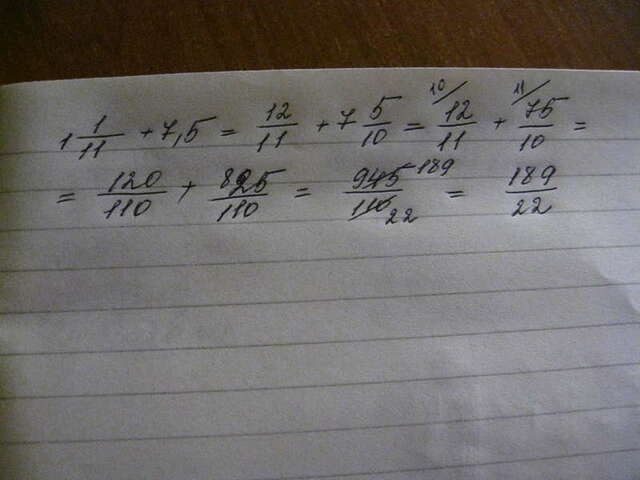 1 1/11 + 7,5 = 12/11 + 7 5/10 = 10/ 12/11 + 11/ 75/10 =
= 120/110 + 825/110 = 945/110 189 22 = 189/22